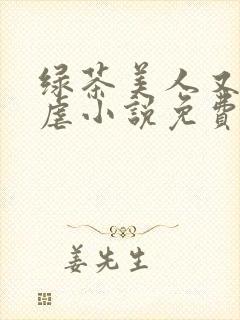 绿茶美人又
虐小說免費
姜先生